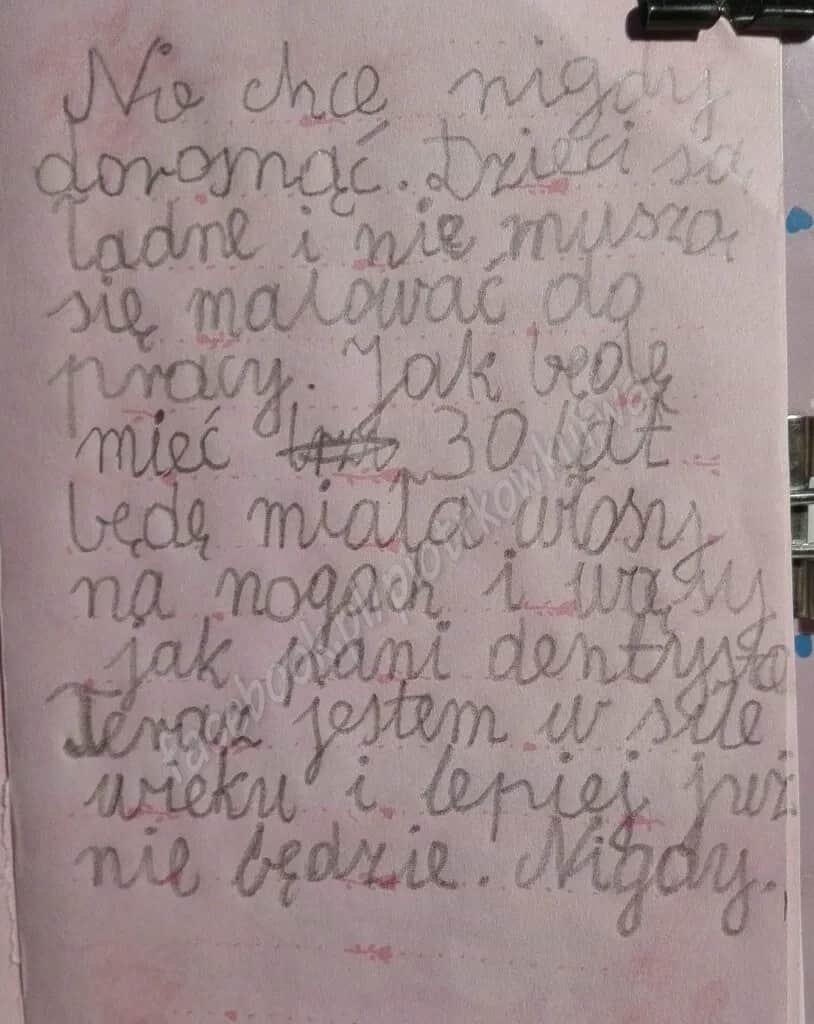 Nie chcę nigdy
dorosnąć. Dzieci są
ładne i nie muszą
się malować do
pracy. Jak będę
mieć 30 lat
będę miała włosy
na nogach i wąsy
jak pani dentysta
Teraz jestem w sile
wieku i lepiej już
nie będzie. Nigdy.